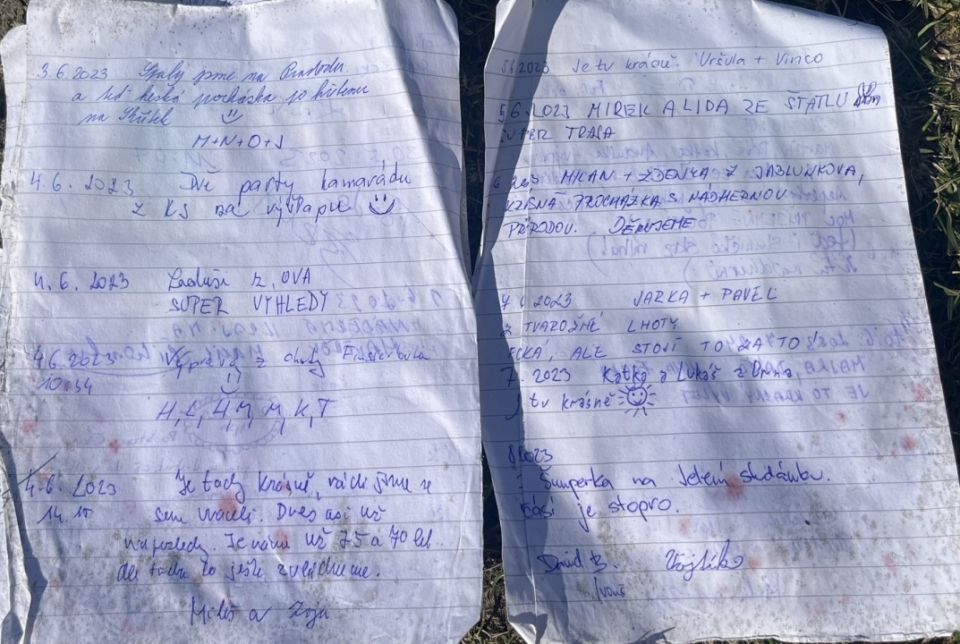 3.6.2023 Spaly jsme na
a teď hezká procházka po hřebenu
na
M+N+O+J
4.6. 2023 Dvě party kamarádu
z KS na výšlapu
4.6. 2023 z OVA
SUPER VÝHLEDY
4.6.2023 z chaty
10:34
H, L, A, M, M, K, T
4.6. 2023 Je tady krásně, rádi jsme se
14.15 sem vraceli. Dnes asi už
naposledy. Je nám už 75 a 70 let
ale to ještě zvládneme.
Miloš a Zoja
2023 Je tu krásně. Uršula + Vinco
5.6.2023 MIREK A LIDA ZE ŠTATLU
SUPER TRASA
MILAN + ZDENKA Z JABLUNKOVA,
KRÁSNÁ PROCHÁZKA S NÁDHERNOU
PŘÍRODOU. DĚKUJEME
2023 JARKA + PAVEL
Z TVAROŽNÉ LHOTY
ALE STOJÍ TO ZA TO
7. 2023 Katka a Lukáš z Brna,
tu krásně
2023
Šumperka na studánku.
je stopro.
David B. Vojtík